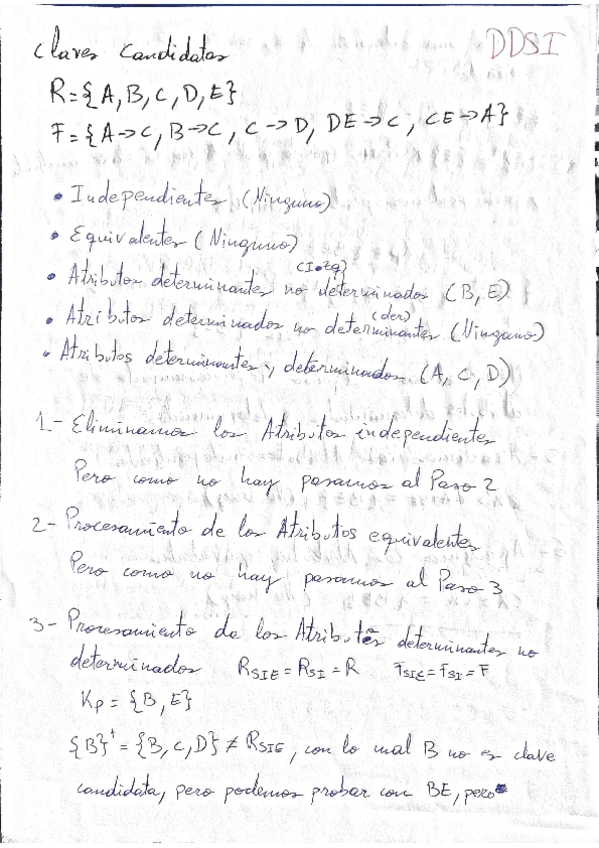 DDSI
Claves Candidatas
R={A,B,C,D,E}
F={A->C, B->C, C->D, DE->C, CE->A}
• Independientes (Ninguno)
• Equivalentes (Ninguno)
(Izq)
• Atributos determinantes no determinados (B, E)
(der)
• Atributos determinados no determinantes (Ninguno)
• Atributos determinantes y determinados (A, C, D)
1.- Eliminamos los Atributos independientes
Pero como no hay pasamos al Paso 2
2- Procesamiento de los Atributos equivalentes
Pero como no hay pasamos al Paso 3
3- Procesamiento de los Atributos determinantes no
determinados RSIE = RSI = R FSIE = FSI = F
Kp = {B, E}
{B}+ = {B, C, D} ≠ RSIE, con lo cual B no es clave
candidata, pero podemos probar con BE, pero